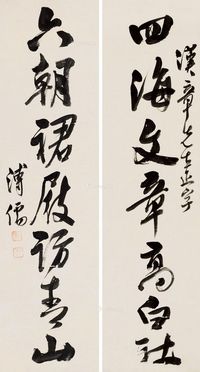 漢章先生正字
四海文章高白社
六朝裙屐訪青山
溥儒